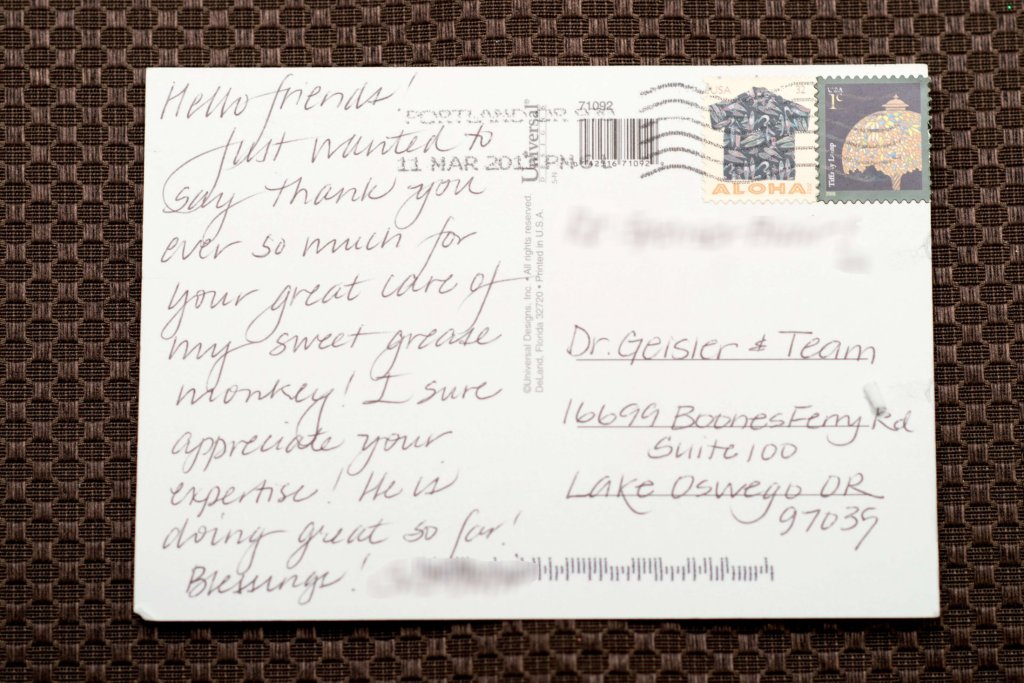 Hello friends!
Just wanted to
say thank you
ever so much for
your great care of
my sweet grease
monkey! I sure
appreciate your
expertise! He is
doing great so far!
Blessings!
PORTLAND OR
11 MAR 201 PM
Universal®
©Universal Designs, Inc. • All rights reserved.
DeLand, Florida 32720 • Printed in U.S.A.
71092
USA 32
ALOHA
USA
1c
Tiffany Lamp
Dr. Geisler & Team
16699 Boones Ferry Rd
Suite 100
Lake Oswego OR
97035